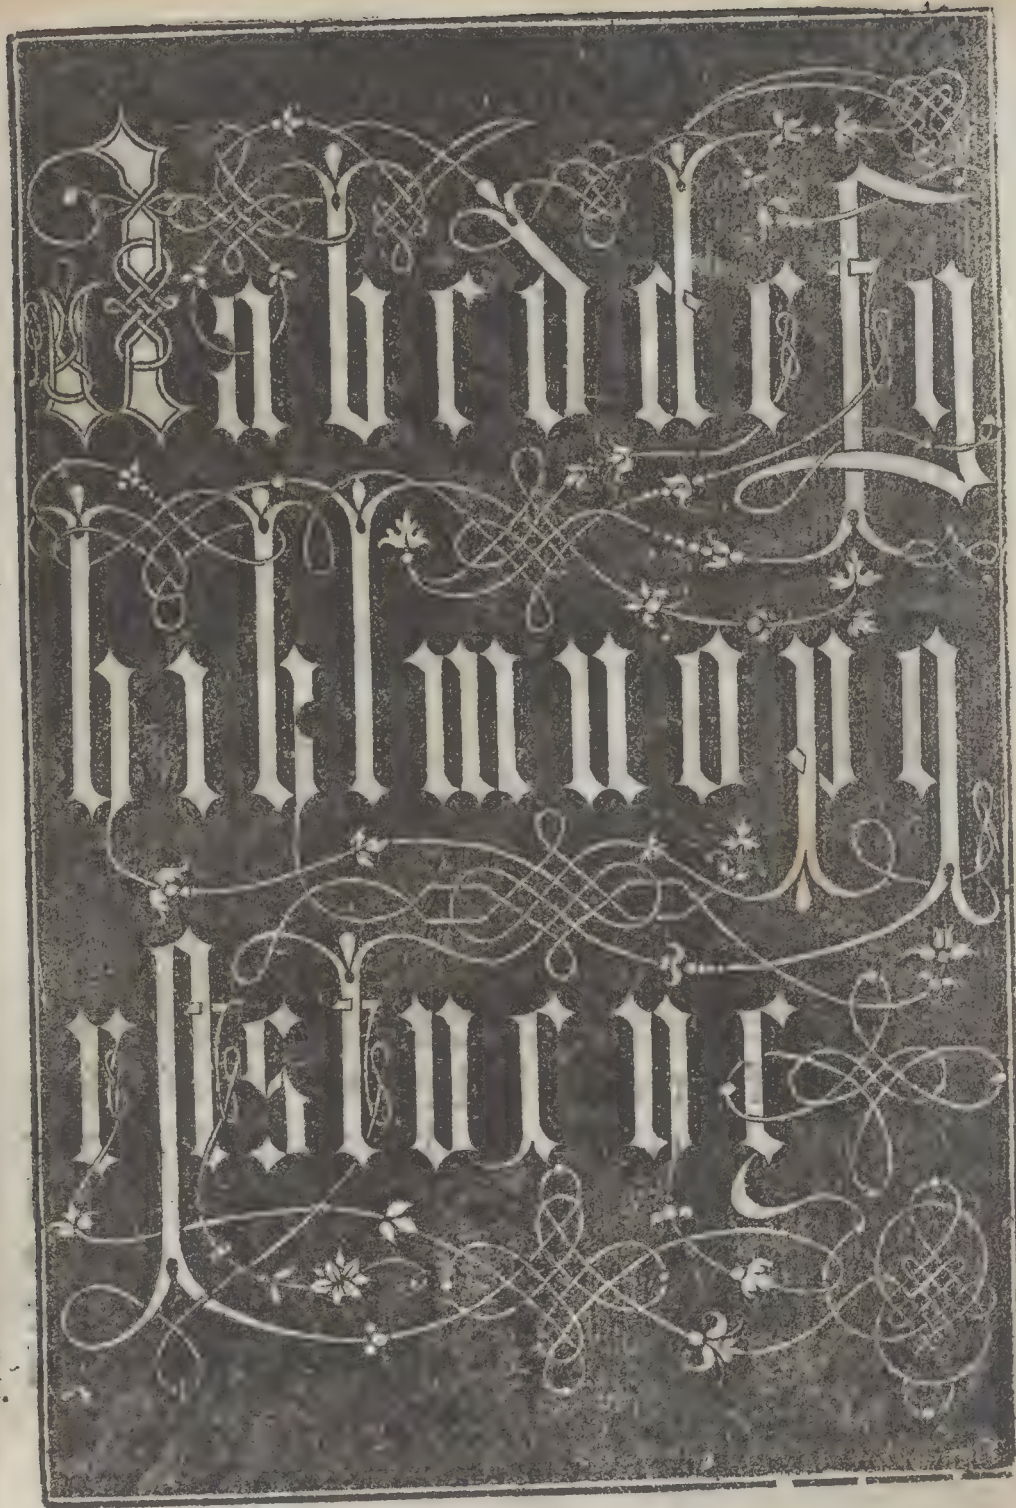 A a b c d d e f g
h i k l m n o p q
r ſt s t u x y z